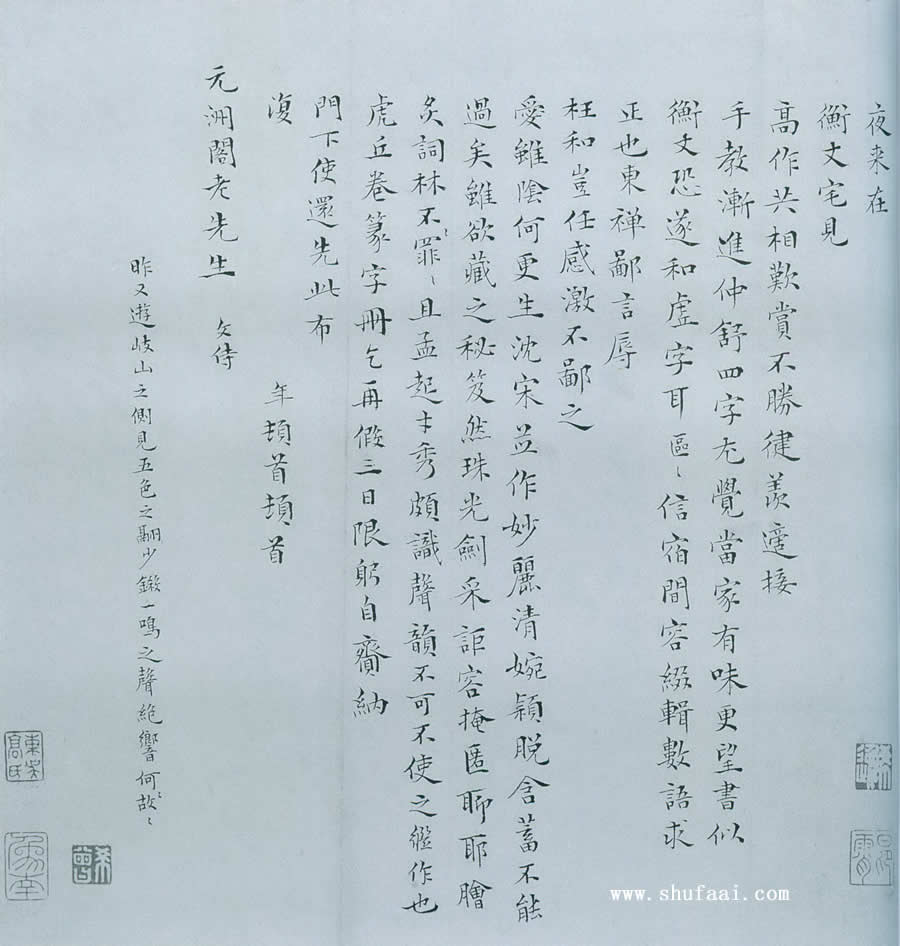 夜来在
衡丈宅見
高作共相歎賞不勝健羨適接
手教漸進仲舒四字尤覺當家有味更望書似
衡丈恐遂和虛字耳區〻信宿間容綴輯數語求
正也東禅鄙言辱
枉和豈任感激不鄙之
愛雖陰何更生沈宋並作妙麗清婉穎脱含蓄不能
過矣雖欲藏之秘笈然珠光劍采詎容掩匿聊耶膾
炙詞林不罪〻且孟起才秀頗識聲韻不可不使之繼作也
虎丘卷篆字冊乞再假三日限躬自齎納
門下使還先此布
復
年頓首頓首
元洲閣老先生 文侍
昨又遊岐山之側見五色之翩少鎩一鳴之聲絶響何故〻
www.shufaai.com